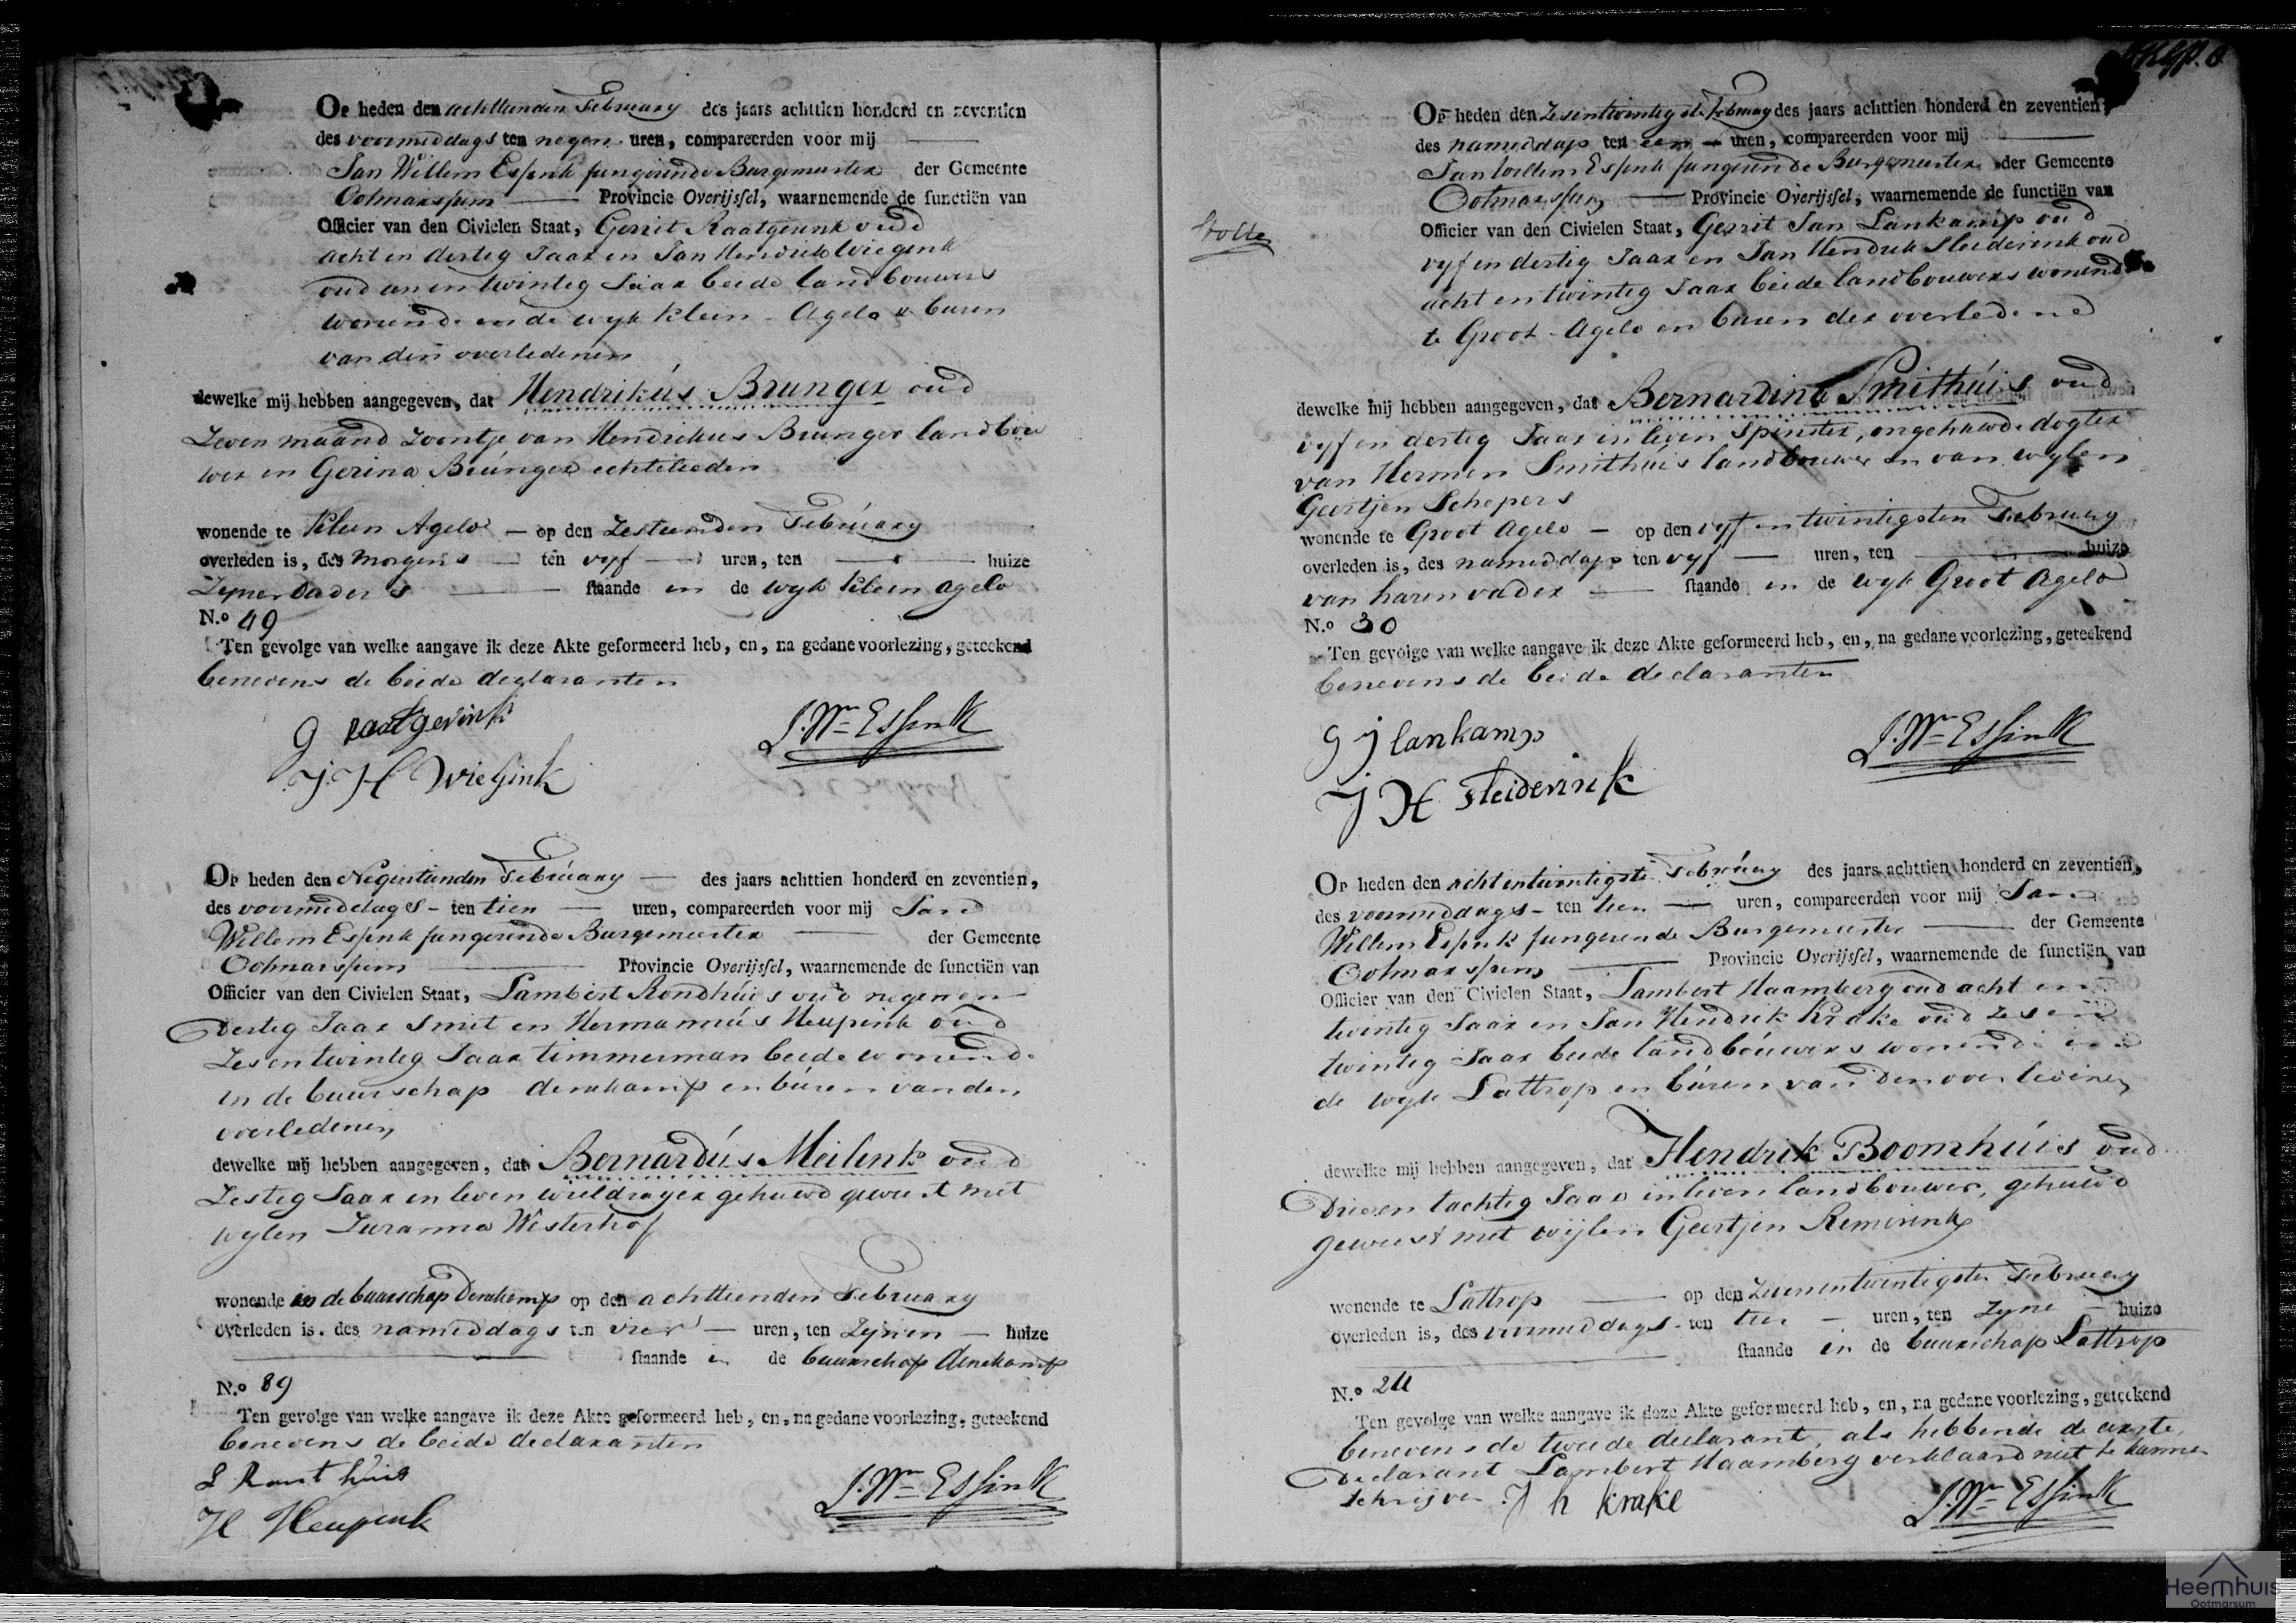 Op heden den achttienden February des jaars achttien honderd en zeventien
des voormiddags ten negen uren, compareerden voor mij
Jan Willem Essink fungerende Burgemeester der Gemeente
Ootmarssum Provincie Overijssel, waarnemende de functiën van
Officier van den Civielen Staat, Gerrit Raatgerink oud
acht en dertig Jaar en Jan Hendrik Wiegink
oud een en twintig Jaar beide landbouwers
wonende in de wyk Klein Agelo buren
van den overledenen
dewelke mij hebben aangegeven, dat Hendrikús Brunger oud
Zeven maand Zoontje van Hendrikus Brunger landbou
wer en Gerina Brúnger echtelieden
wonende te Klein Agelo op den Zestienden Februáry
overleden is, des morgens ten vyf uren, ten huize
Zyner Vaders staande in de wyk Klein Agelo
N.o 49
Ten gevolge van welke aangave ik deze Akte geformeerd heb, en, na gedane voorlezing, geteekend
benevens de beide declaranten
G Raatgerink
J. H Wiegink
J. Wm Essink
Op heden den Negentienden Februáry des jaars achttien honderd en zeventien,
des voormiddags ten tien uren, compareerden voor mij Jan
Willem Essink fungerende Burgemeester der Gemeente
Ootmarssum Provincie Overijssel, waarnemende de functiën van
Officier van den Civielen Staat, Lambert Rondhúis oud negen en
Dertig Jaar Smit en Hermannús Heupink oud
Zes en twintig Jaar timmerman beide wonende
in de buurschap denekamp en búren van den
overledenen
dewelke mij hebben aangegeven, dat Bernardús Meilink oud
Zestig Jaar in leven gehuwd geweest met
wylen Zuranna Westerhof
wonende in de buurschap Denekamp op den achttienden February
overleden is. des namiddags ten vier uren, ten Zynen huize
staande in de buurschap denekamp
N.o 89
Ten gevolge van welke aangave ik deze Akte geformeerd heb, en, na gedane voorlezing, geteekend
benevens de beide declaranten
H Heupink
J. Wm Essink
Stolte
Op heden den Zesentwintigste February des jaars achttien honderd en zeventien,
des namiddags ten een uren, compareerden voor mij
Jan Willem Essink fungerende Burgemeester der Gemeente
Ootmarssum Provincie Overijssel, waarnemende de functiën van
Officier van den Civielen Staat, Gerrit Jan Lankamp oud
vyf en dertig Jaar en Jan Hendrik Sleiderink oud
acht en twintig Jaar beide landbouwers wonende
te Groot Agelo en buren der overledene
dewelke mij hebben aangegeven, dat Bernardina Smithúis oud
vyf en dertig Jaar in leven Spinster, ongehuwde dogter
van Hermen Smithúis landbouwer en van wylen
Geertjen Schepers
wonende te Groot Agelo op den vyf en twintigsten February
overleden is, des namiddags ten vyf uren, ten huize
van haren vader staande in de wyk Groot Agelo
N.o 30
Ten gevolge van welke aangave ik deze Akte geformeerd heb, en, na gedane voorlezing, geteekend
benevens de beide declaranten
G J lankamp
J H Sleiderink
J. Wm Essink
Op heden den achtentwintigste Februáry des jaars achttien honderd en zeventien,
des voormiddags ten tien uren, compareerden voor mij Jan
Willem Essink fungerende Burgemeester der Gemeente
Ootmarssum Provincie Overijssel, waarnemende de functiën van
Officier van den Civielen Staat, Lambert Haamberg oud acht en
twintig Jaar en Jan Hendrik Krake oud Zes en
twintig Jaar beide landbóuwers wonende in
de wyk Lattrop en búren van den overledenen
dewelke mij hebben aangegeven, dat Hendrik Boomhúis oud
Drie en tachtig Jaar in leven landbouwer, gehuwd
geweest met wijlen Geertjen Remerink
wonende te Lattrop op den Zevenentwintigsten February
overleden is, des voormiddags ten uren, ten Zyne huize
staande in de buurschap Lattrop
N.o
Ten gevolge van welke aangave ik deze Akte geformeerd heb, en, na gedane voorlezing, geteekend
benevens de tweede declarant, als hebbende de eerste
Declarant Lambert Haamberg verklaard niet te kunnen
schrijven J h krake
J. Wm Essink
Heemhuis
Ootmarsum